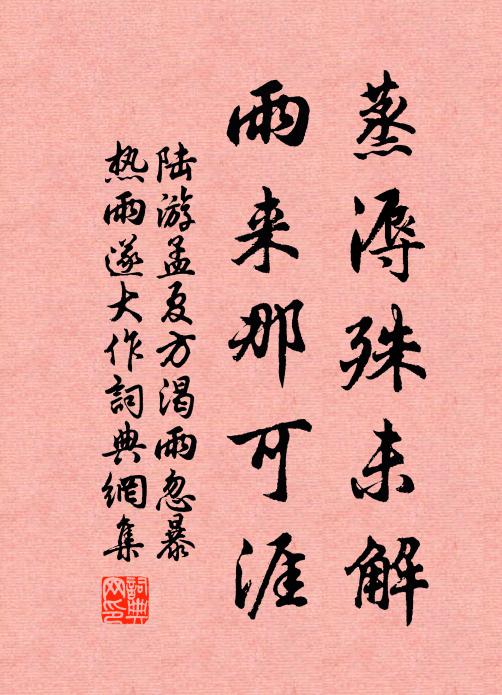 蒸溽殊未解
雨来那可涯
陆游孟夏方渴雨忽暴
热雨遂大作詞典網集
詞典網印